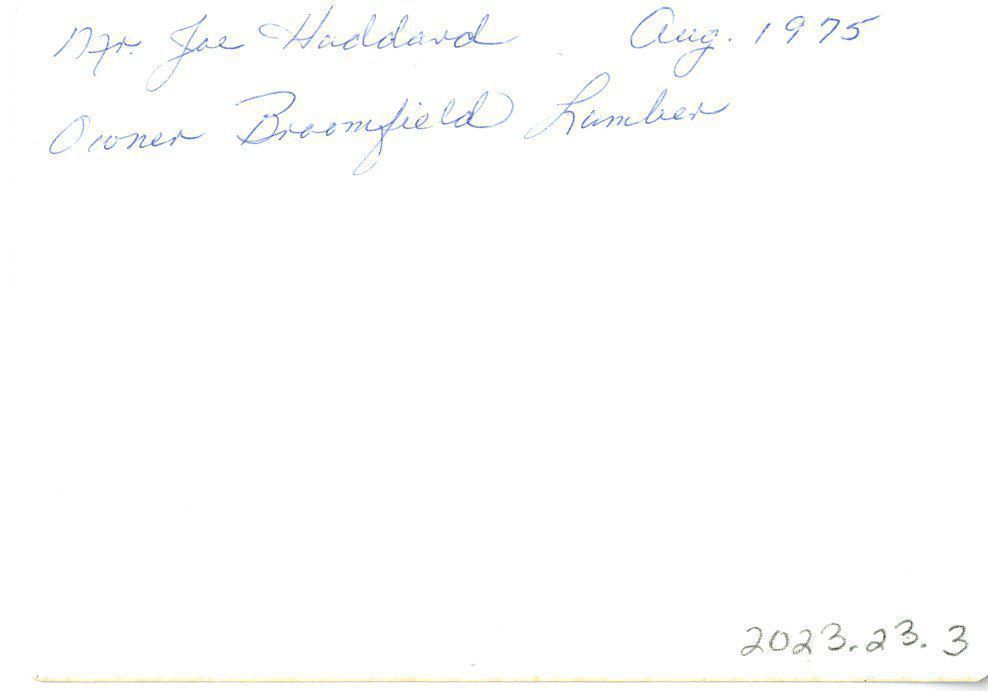 Mr. Joe Haddard Aug. 1975
Owner Broomfield Lumber
2023.23.3